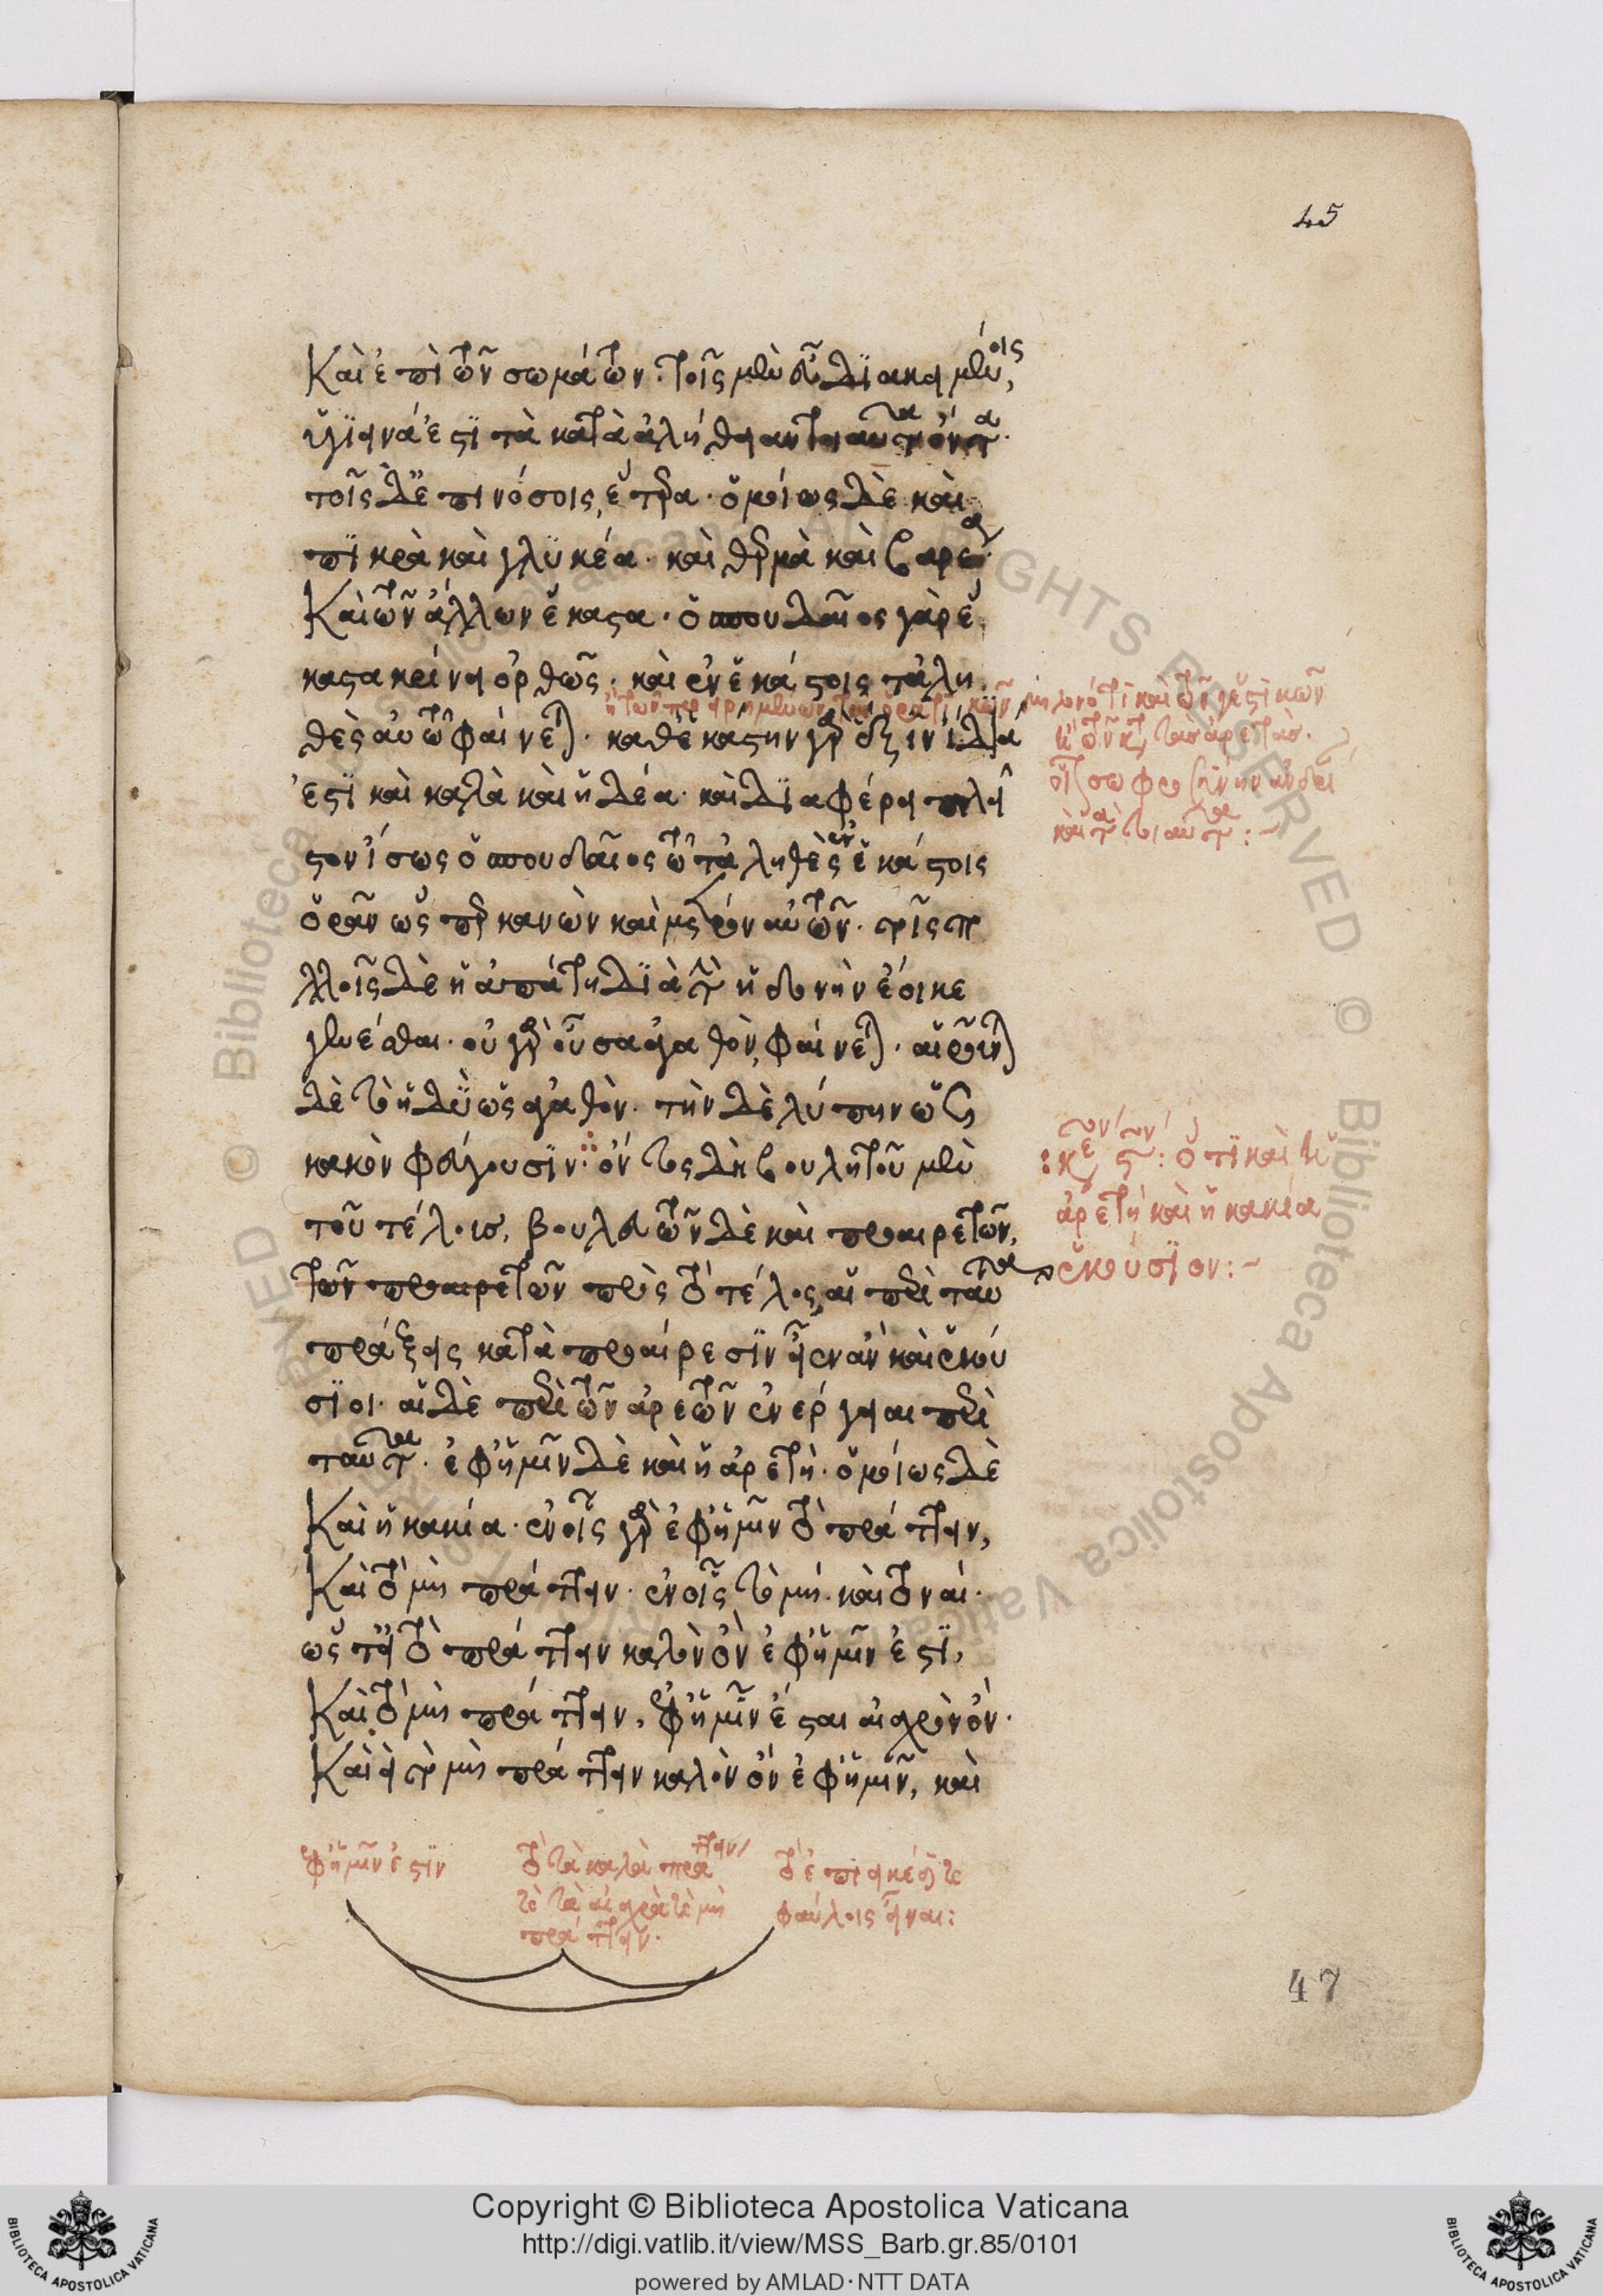 45
Καὶ ἐπὶ τῶν σωμάτων· τοῖς μὲν εὖ διακειμένοις,
ὑγιεινά ἐστι τὰ κατὰ ἀλήθειαν τοιαῦτα ὄντα·
τοῖς δὲ ἐπινόσοις, ἕτερα· ὁμοίως δὲ καὶ
πικρὰ καὶ γλυκέα· καὶ θερμὰ καὶ βαρέα·
Καὶ τῶν ἄλλων ἕκαστα· ὁ σπουδαῖος γὰρ ἕ
καστα κρίνει ὀρθῶς· καὶ ἐν ἑκάστοις τἀλη
θὲς αὐτῷ φαίνεται· καθ' ἑκάστην γὰρ ἕξιν ἴδια
ἐστὶ καὶ καλὰ καὶ ἡδέα· καὶ διαφέρει πλεῖ
στον ἴσως ὁ σπουδαῖος τῷ τἀληθὲς ἐν ἑκάστοις
ὁρᾶν ὥσπερ κανὼν καὶ μέτρον αὐτῶν· τοῖς πο
λλοῖς δὲ ἡ ἀπάτη διὰ τὴν ἡδονὴν ἔοικε
γενέσθαι· οὐ γὰρ οὖσα ἀγαθὸν, φαίνεται· αἱροῦνται
δὲ τὸ ἡδὺ ὡς ἀγαθὸν· τὴν δὲ λύπην ὡς
κακὸν φεύγουσιν· ὄντος δὴ βουλητοῦ μὲν
τοῦ τέλους, βουλευτῶν δὲ καὶ προαιρετῶν,
τῶν προαιρετῶν πρὸς τὸ τέλος, αἱ περὶ ταῦτα
πράξεις κατὰ προαίρεσιν εἶεν ἂν καὶ ἑκού
σιοι· αἱ δὲ περὶ τῶν ἀρετῶν ἐνέργειαι περὶ
ταῦτα· ἐφ' ἡμῖν δὲ καὶ ἡ ἀρετὴ· ὁμοίως δὲ
Καὶ ἡ κακία· ἐν οἷς γὰρ ἐφ' ἡμῖν τὸ πράττειν,
Καὶ τὸ μὴ πράττειν· ἐν οἷς τὸ μή· καὶ τὸ ναί·
ὥστ' εἰ τὸ πράττειν καλὸν ὂν ἐφ' ἡμῖν ἐστι,
Καὶ τὸ μὴ πράττειν, ἐφ' ἡμῖν ἔσται αἰσχρὸν ὄν·
Καὶ εἰ τὸ μὴ πράττειν καλὸν ὂν ἐφ' ἡμῖν, καὶ
ὅτι καὶ ἡ
ἀρετὴ καὶ ἡ κακία
ἑκούσιον:~
ἐφ' ἡμῖν ἐστὶν
τὸ τὰ καλὰ πράττειν
τὸ τὰ αἰσχρὰ τὸ μὴ
πράττειν·
τὸ ἐπιεικέσι τε
φαύλοις εἶναι:
47
Copyright © Biblioteca Apostolica Vaticana
http://digi.vatlib.it/view/MSS_Barb.gr.85/0101
powered by AMLAD·NTT DATA